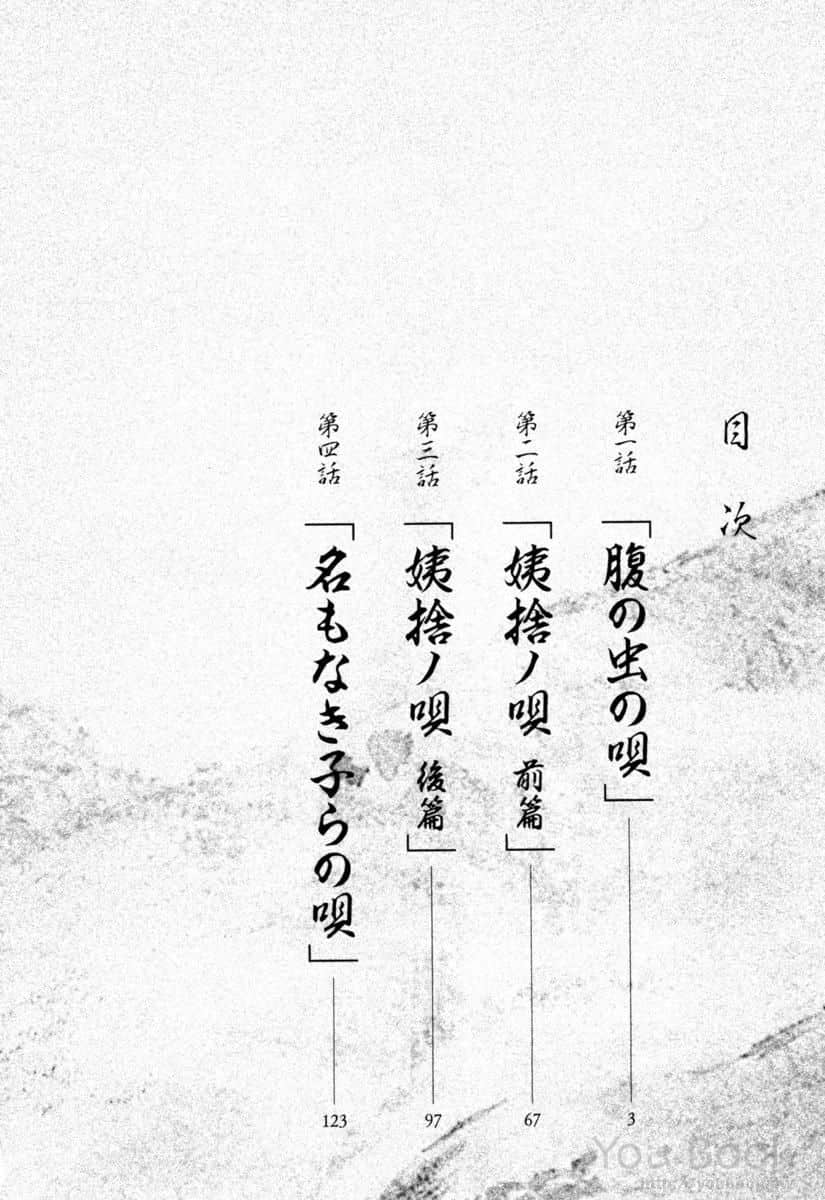 目次
第一話「腹の虫の唄」3
第二話「姨捨ノ唄 前篇」67
第三話「姨捨ノ唄 後篇」97
第四話「名もなき子らの唄」123